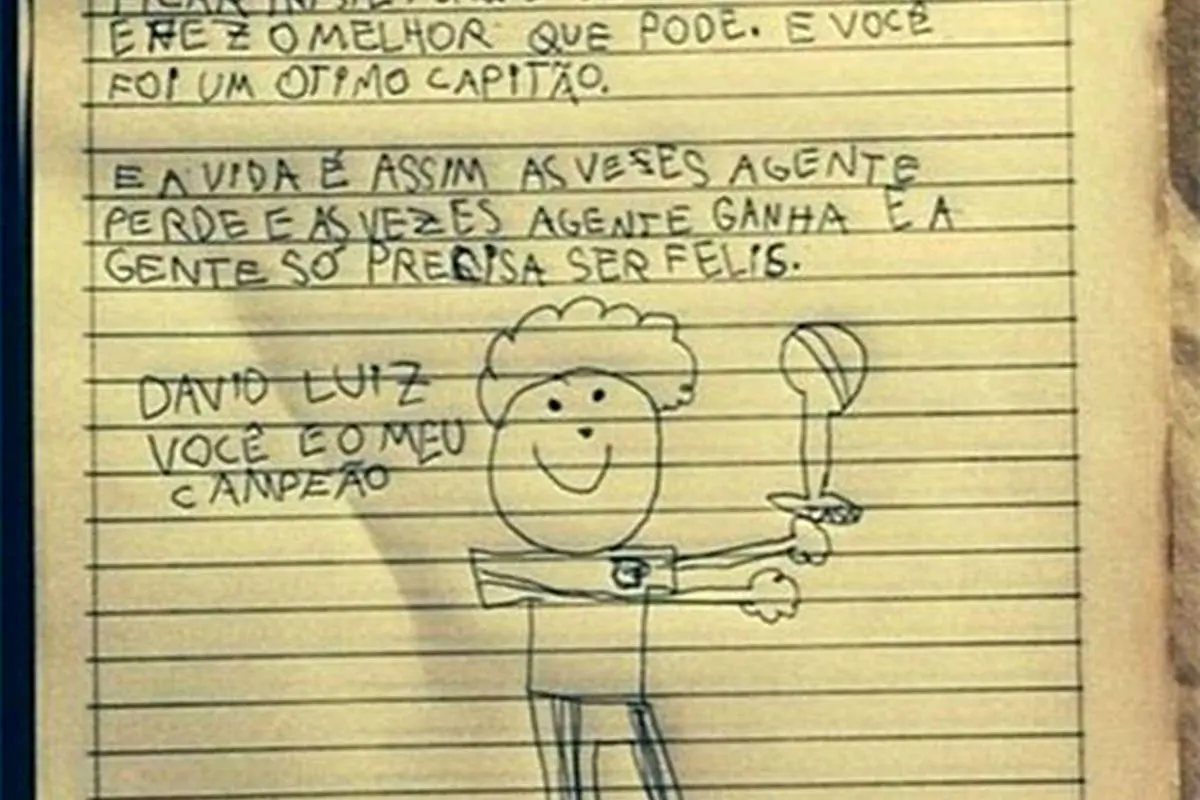 E FEZ O MELHOR QUE PODE. E VOCÊ
FOI UM OTIMO CAPITÃO.
E A VIDA É ASSIM AS VESES AGENTE
PERDE E AS VEZES AGENTE GANHA E A
GENTE SÓ PRECISA SER FELIS.
DAVID LUIZ
VOCÊ E O MEU
CAMPEÃO